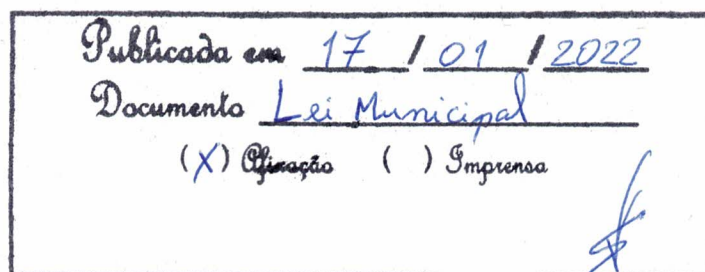 Publicada em 17 / 01 / 2022
Documento Lei Municipal
(X) Afixação ( ) Imprensa